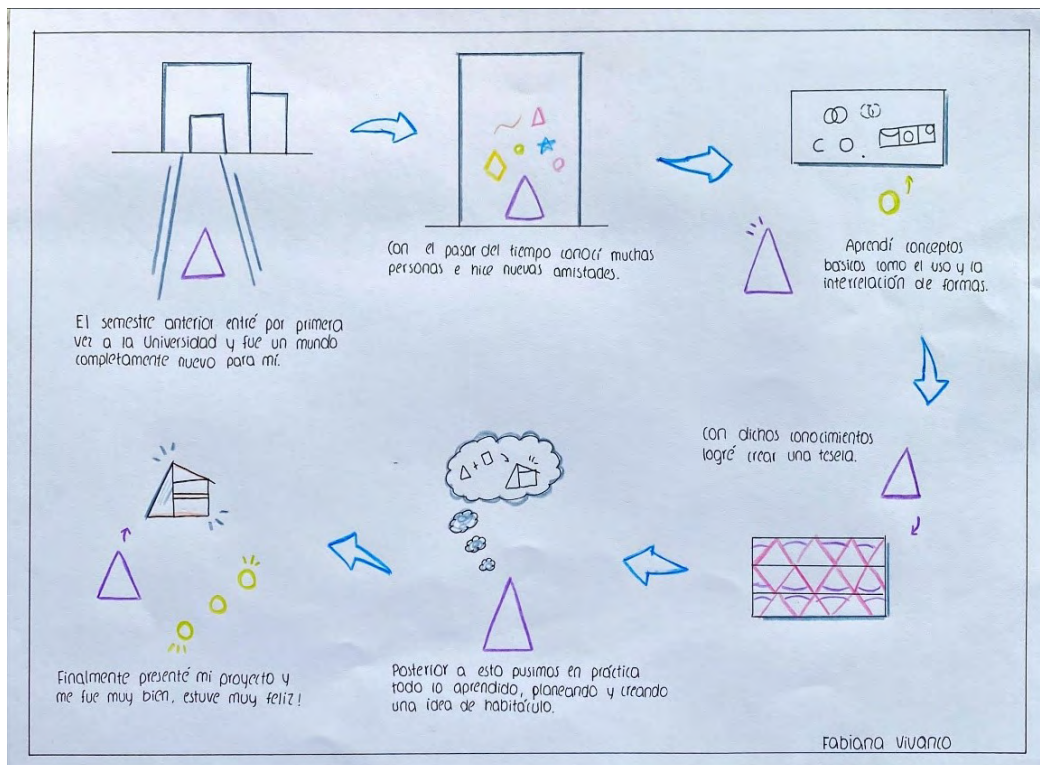 El semestre anterior entré por primera
vez a la Universidad y fue un mundo
completamente nuevo para mí.
Con el pasar del tiempo conocí muchas
personas e hice nuevas amistades.
Aprendí conceptos
basicos como el uso y la
interrelación de formas.
Con dichos conocimientos
logré crear una tesela.
Posterior a esto pusimos en práctica
todo lo aprendido, planeando y creando
una idea de habitáculo.
Finalmente presenté mi proyecto y
me fue muy bien, estuve muy feliz!
Fabiana Vivanco